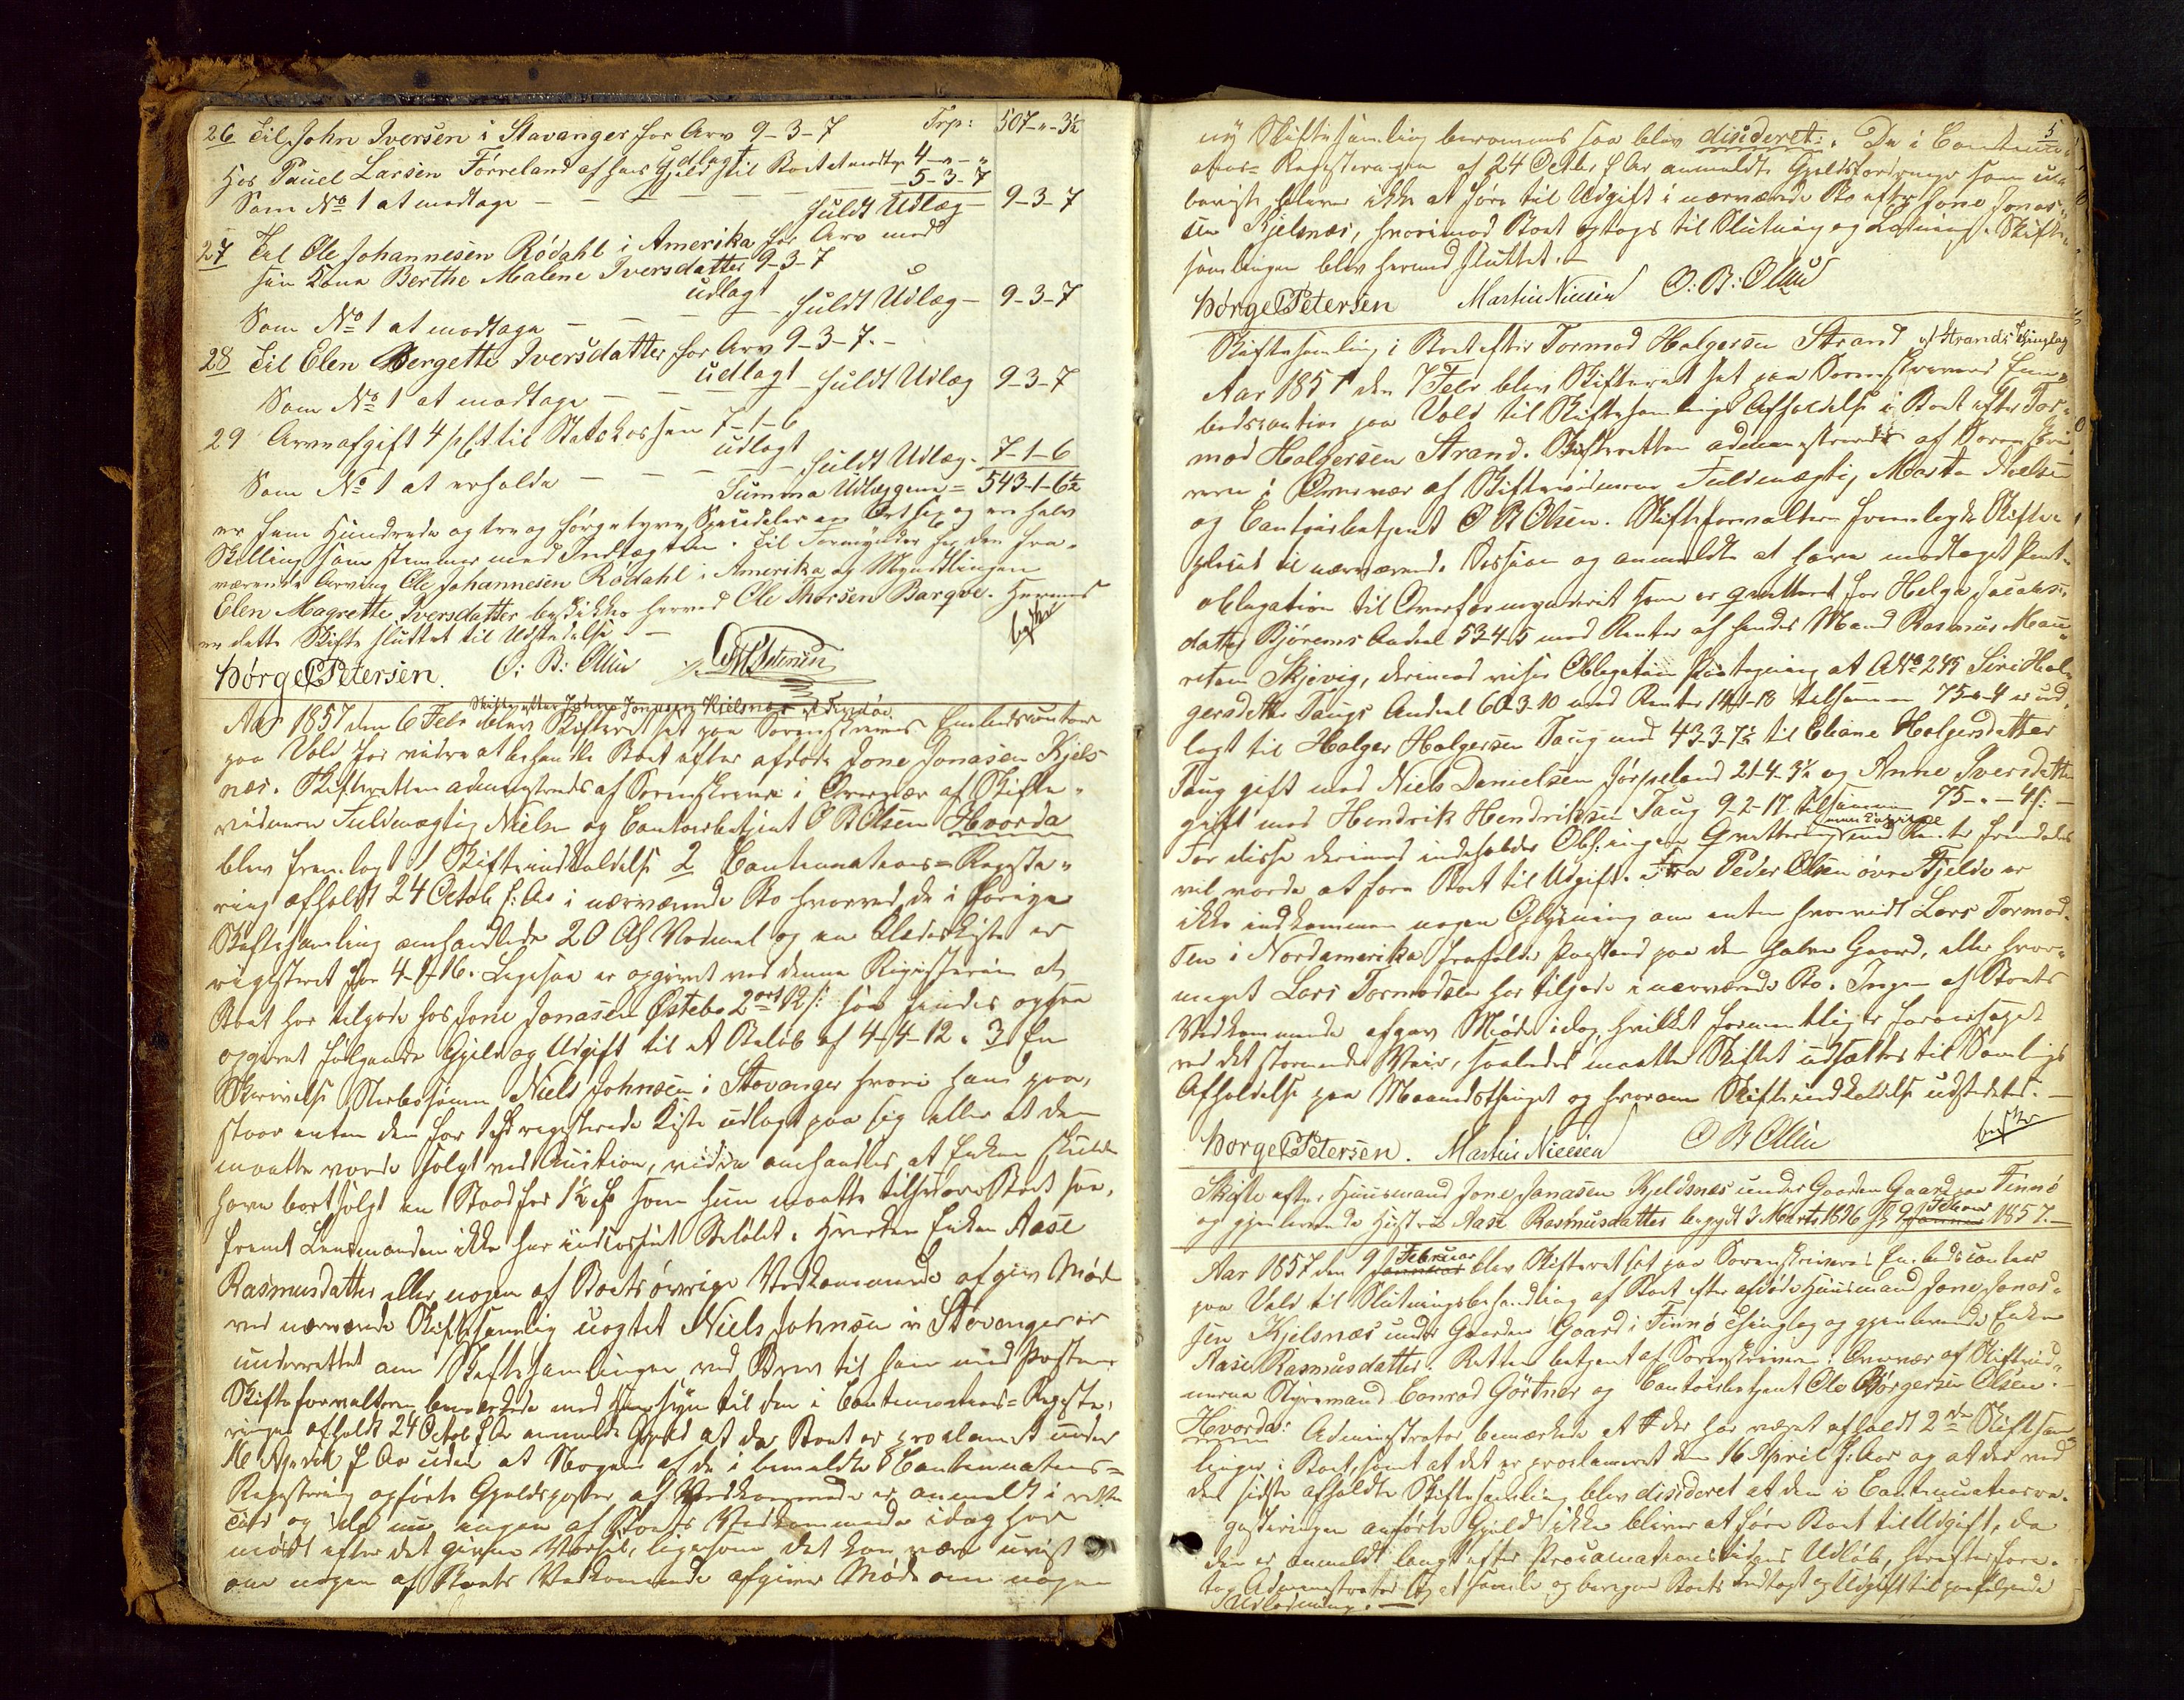 26 Til John Iversen i Stavanger for Arv 9-3-7 Trp: 507-"-3½
udlagt
Hos Pauel Larsen Førreland af hans Gjeld til Boet at modtage 4-"-"
5-3-7
Som No 1 at modtage — fuldt Udlæg — 9-3-7
27 Til Ole Johannesen Rødahl i Amerika for Arv med
sin Kone Berthe Malene Iversdatter 9-3-7
udlagt
Som No 1 at modtage — fuldt Udlæg — 9-3-7
28 Til Elen Bergette Iversdatter for Arv 9-3-7.-
udlagt
Som No 1 at modtage — fuldt Udlæg 9-3-7
29 Arveafgift 4 pCt til Statskassen 7-1-6
udlagt
Som No 1 at erholde — fuldt Udlæg. 7-1-6
Summa Udlæggene = 543-1-6½
er fem Hundrede og tre og førgetyve Speciedaler en Ort sex og en halv
Skilling som stemmer med Indtægten. Til Formynder for den fra-
værende Arving Ole Johannesen Rødahl i Amerika og Myndlingen
Elen Magrette Iversdatter beskikkes herved Ole Thorsen Barqve. Hermed
er dette Skifte sluttet til Udstedelse —
Børge Petersen. O: B: Olsen Petersen
Skifte efter Johne Jonasen Kielsnæs af Findøe.
Aar 1857 den 6 Febr blev Skifteret sat paa Sorenskriverens Embedscontor
paa Vold for videre at behandle Boet efter afdøde Jone Jonasen Kjels-
næs. Skifteretten administreredes af Sorenskriveren i Overvær af Skifte-
vidnerne Fuldmægtig Nielsen og Contoirbetjent O B Olsen Hvorda
blev fremlagt 1 Skifteindkaldelse 2 Continuations=Registe-
ring afholdt 24 Octob f: Ar i nærværende Bo hvorved de i forrige
Skiftesamling omhandlede 20 Al Vadmel og en Klædeskiste er
registeret for 4-1-16. Ligesaa er opgivet ved denne Registering at
Boet har tilgode hos Jone Jonasen Østebø 2 ort 12 s: som findes ogsaa
opgivet følgende Gjeld og Udgift til et Beløb af 4-4-12. 3 En
Skrivelse Sterbosønnen Niels Johnsen i Stavanger hvori han paa-
staar enten den for 1 Spd registerede Kiste udlagt paa sig eller at den
maatte vorde solgt ved Auction, videre omhandles at Enken skulde
have bortsolgt en Baad for 1½ Spd som hun maatte tilsvare Boet saa-
fremt Lensmanden ikke har inddrevet Beløbet. Hverken Enken Aase
Rasmusdatter eller nogen af Boets øvrige Vedkommende afgiv Møde
ved nærværende Skiftesamling uagtet Niels Johnsen i Stavanger er
underrettet om Skiftesamlingen ved Brev til ham med Posten
Skifteforvalteren bemærkede med Hensyn til den i Continuations=Registe-
ringen afholdt 24 Octob f Ar anmeldte Gjeld at da Boet er proclameret under
16 April f Aar uden at Nogen af de i bemeldte Continuations=
Registering opførte Gjeldsposter af Vedkommende er anmeldt i rette
Tid og da nu ingen af Boets Vedkommende idag har
mødt efter det givne Varsel, ligesom det kan være uvist
om nogen af Boets Vedkommende afgiver Møde om nogen
5
ny Skiftesamling berammes saa blev disideret: Da i Continu-
ations=Registeringen af 24 Octbr f Ar anmeldte Gjeldsfordringer som ube-
beviste bliver ikke at føre til Udgift i nærværende Bo efter Jone Jonas-
sen Kjelsnæs, hvorimod Boet optages til Slutning og Lodning. Skifte-
samlingen blev hermed sluttet.-
Børge Petersen Martin Nielsen O: B: Olsen
Skiftesamling i Boet efter Tormod Holgersen Strand af Strands Thinglag
Aar 1857 den 7 Febr blev Skifteret sat paa Sorenskriverens Em-
bedscontoir paa Vold til Skiftesamlings Afholdelse i Boet efter Tor-
mod Holgersen Strand. Skifteretten administreredes af Sorenskri-
veren i Overvær af Skiftevidnerne Fuldmægtig Martin Nielsen
og Contoirbetjent O B Olsen. Skifteforvalteren fremlagde Skifte-
placat til nærværende Session og anmeldte at have modtaget Pant-
obligation til Overformynderiet som er qvitteret for Helga Jacobs-
datter Bjørems Andeel 53-4-5 med Renter af hendes Mand Rasmus Mau-
ritsen Skjevig, derimod viser Obligationen Paategning at A No 245 Siri Hol-
gersdatter Taugs Andeel 60-3-10 med Renter 14-1-18 tilsammen 75-"-4 er ud-
lagt til Holger Holgersen Taug med 43-3-7½ til Eliane Holgersdatter
Taug gift med Niels Danielsen Jørpeland 21-4-3½ og Anne Iversdatter
gift med Hendrik Hendriksen Taug 9-2-17. tilsammen 75-"-4 s:
For disse derimod indeholder Obl: ingen Qvittering med Renter hvorledes
vil vorde at føre Boet til Udgift. Fra Peder Olsen øvre Fjelde er
ikke indkommen nogen Oplysning om enten hvorvidt Lars Tormod-
sen i Nordamerika frafalde Paastand paa den halve Gaard, eller hvor-
meget Lars Tormodsen har tilgode i nærværende Bo. Ingen af Boets
Vedkommende afgav Møde idag, hvilket formentlig er foraarsaget
ved det stormende Veir, saaledes maatte Skiftet udsættes til Samlings
Afholdelse paa Maanedsthinget og hvorom Skifteindkaldelse udstedes.—
Børge Petersen. Martin Nielsen O B Olsen
Skifte efter Huusmand Jone Jonasen Kjeldsnes under Gaarden Gaard paa Finnø
og gjenlevende Hustru Aase Rasmusdatter begyndt 3 Marts 1856 sl 9 Februar 1857.—
Aar 1857 den 9 Februar blev Skifteret sat paa Sorenskriverens Embedscontoir
paa Vold til Slutningsbehandling af Boet efter afdøde Huusmand Jone Jonas-
sen Kjelsnæs under Gaarden Gaard i Finnø Thinglag og gjenlevende Enke
Aase Rasmusdatter. Retten betjent af Sorenskriveren i Overvær af Skiftevid-
nerne Styrmand Conrad Görtner og Contoirbetjent Ole Børgersen Olsen.-
Hvorda: Administrator bemærkede at der har været afholdt 2de Skiftesam-
linger i Boet, samt at det er proclameret den 16 April f: Aar og at der ved
den sidste afholdte Skiftesamling blev disideret at den i Continuationsre-
gisteringen anførte Gjeld ikke bliver at føre Boet til Udgift, da
den er anmeldt langt efter Proclamationstidens Udløb, herefter fore-
tog Administrator sig at samle og beregne Boets Indtægt og Udgift til paafølgende
Udlodning.—